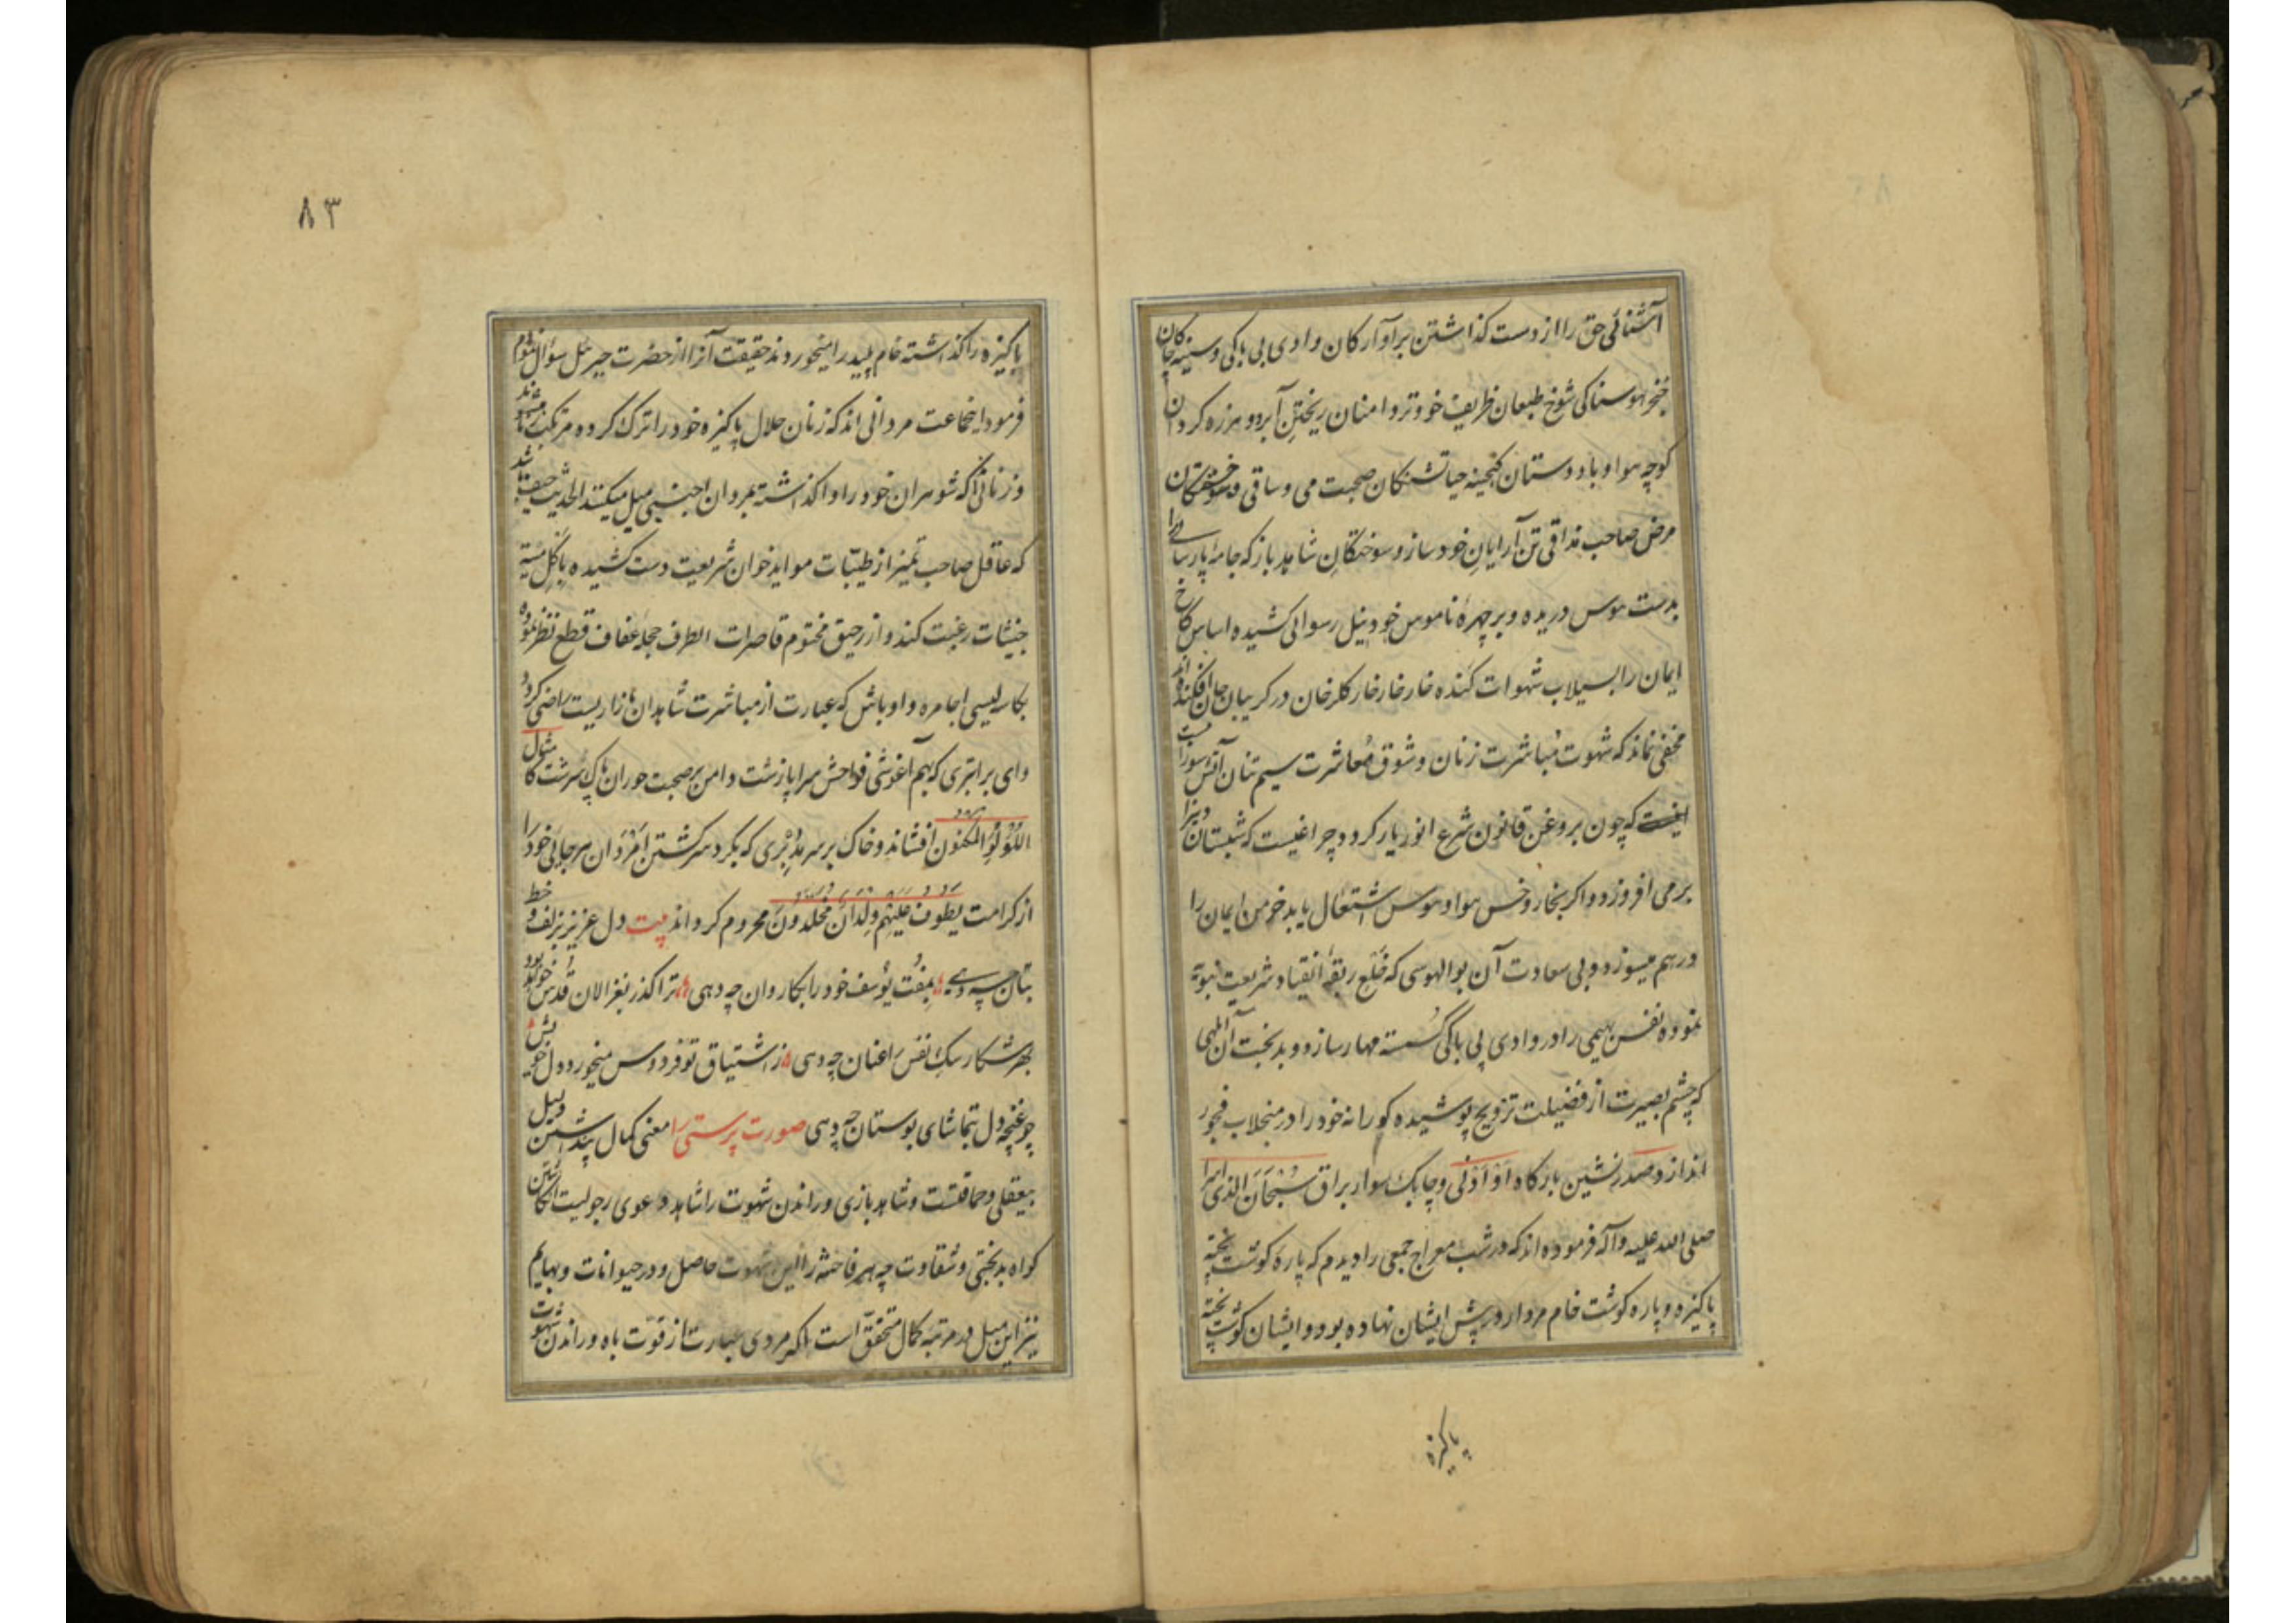 آشنائی حق را از دست کذاشتن بر آوارکان وادی بی باکی و سینه چاکان
خنجر هوسناکی شوخ طبعان ظریف خو و تر دامنان ریختن آبرو و هرزه کردان
کوچه هوا و باد دوستان کنجینه حیا تشنکان صحبت می و ساقی و خستکان
مرض صاحب مذاقی تن آرایان خودساز و سوختکان شاهدباز که جامه پارسائی را
بدست هوس دریده و بر چهرهٔ ناموس خود نیل رسوائی کشیده اساس کاخ
ایمان را بسیلاب شهوات کنده خار خار خار کلرخان در کریبان جان افکنده اند
مخفی نماند که شهوت مباشرت زنان و شوق معاشرت سیم تنان آتش سوزا
نیست که چون بروغن قانون شرع انور یار کردد چراغیست که شبستان دین را
بر می افروزد و اکر بخار و خس هوا و هوس اشتعال یابد خرمن ایمان را
در هم میسوزد و بی سعادت آن بوالهوسی که خلع ربقهٔ انقیاد شریعت نبوة
نموده نفس بهیمی را در وادی بی باکی کسسته مهار سازد و بدبخت آن ابلهی
که چشم بصیرت از فضیلت تزویج پوشیده کورانه خود را در منجلاب فجور
اندازد صدرنشین بارکاه أو أدنی و چابک سوار براق سبحان الذی اسرا
صلی الله علیه و آله فرموده اند که در شب معراج جمعی را دیدم که پاره کوشت پخته
پاکیزه و پاره کوشت خام مردار در پیش ایشان نهاده بود و ایشان کوشت پخته
پاکیزه
۸۳
پاکیزه را کذاشته خام پلید را میخوردند حقیقت آنرا از حضرت جبرئیل سؤال نمودم
فرمود اینجماعت مردانی اند که زنان حلال پاکیزه خود را ترک کرده مرتکب زنا میشوند
و زنانی که شوهران خود را واکذاشته بمردان اجنبی میل میکنند الحدیث حیف باشد
که عاقل صاحب تمیز از طیبات مواید خوان شریعت دست کشیده باکل میته
خبیثات رغبت کند و از رحیق مختوم قاصرات الطرف حجلهٔ عفاف قطع نظر نموده
بکاسه لیسی اجامره و اوباش که عبارت از مباشرت شاهدان بازاریست راضی کردد
وای بر ابتری که بهم آغوشی فواحش سراپا زشت دامن بر صحبت حوران پاک سرشت کامثال
اللؤلؤ المکنون افشاند و خاک بر سر مدبری که بکرد سر کشتن امردان هرجائی خود را
از کرامت یطوف علیهم ولدان مخلدون محروم کرداند بیت دل عزیز بزلف و خط
بتان چه دهی بمفت یوسف خود را بکاروان چه دهی ترا کذر بغزالان قدس خواهد بود
بهر شکار سک نفس را عنان چه دهی ز اشتیاق تو فردوس میخورد دل خویش
چو غنچه دل بتماشای بوستان چه دهی صورت پرستی را معنی کمال پنداشتن دلیل
بیعقلی و حماقتست و شاهد بازی و راندن شهوت را شاهد دعوی رجولیت انکاشتن
کواه بدبختی و شقاوت چه هر فاحشه را این شهوت حاصل و در حیوانات و بهایم
نیز این میل در مرتبه کمال متحقق است اکر مردی عبارت از قوت باه و راندن شهوت